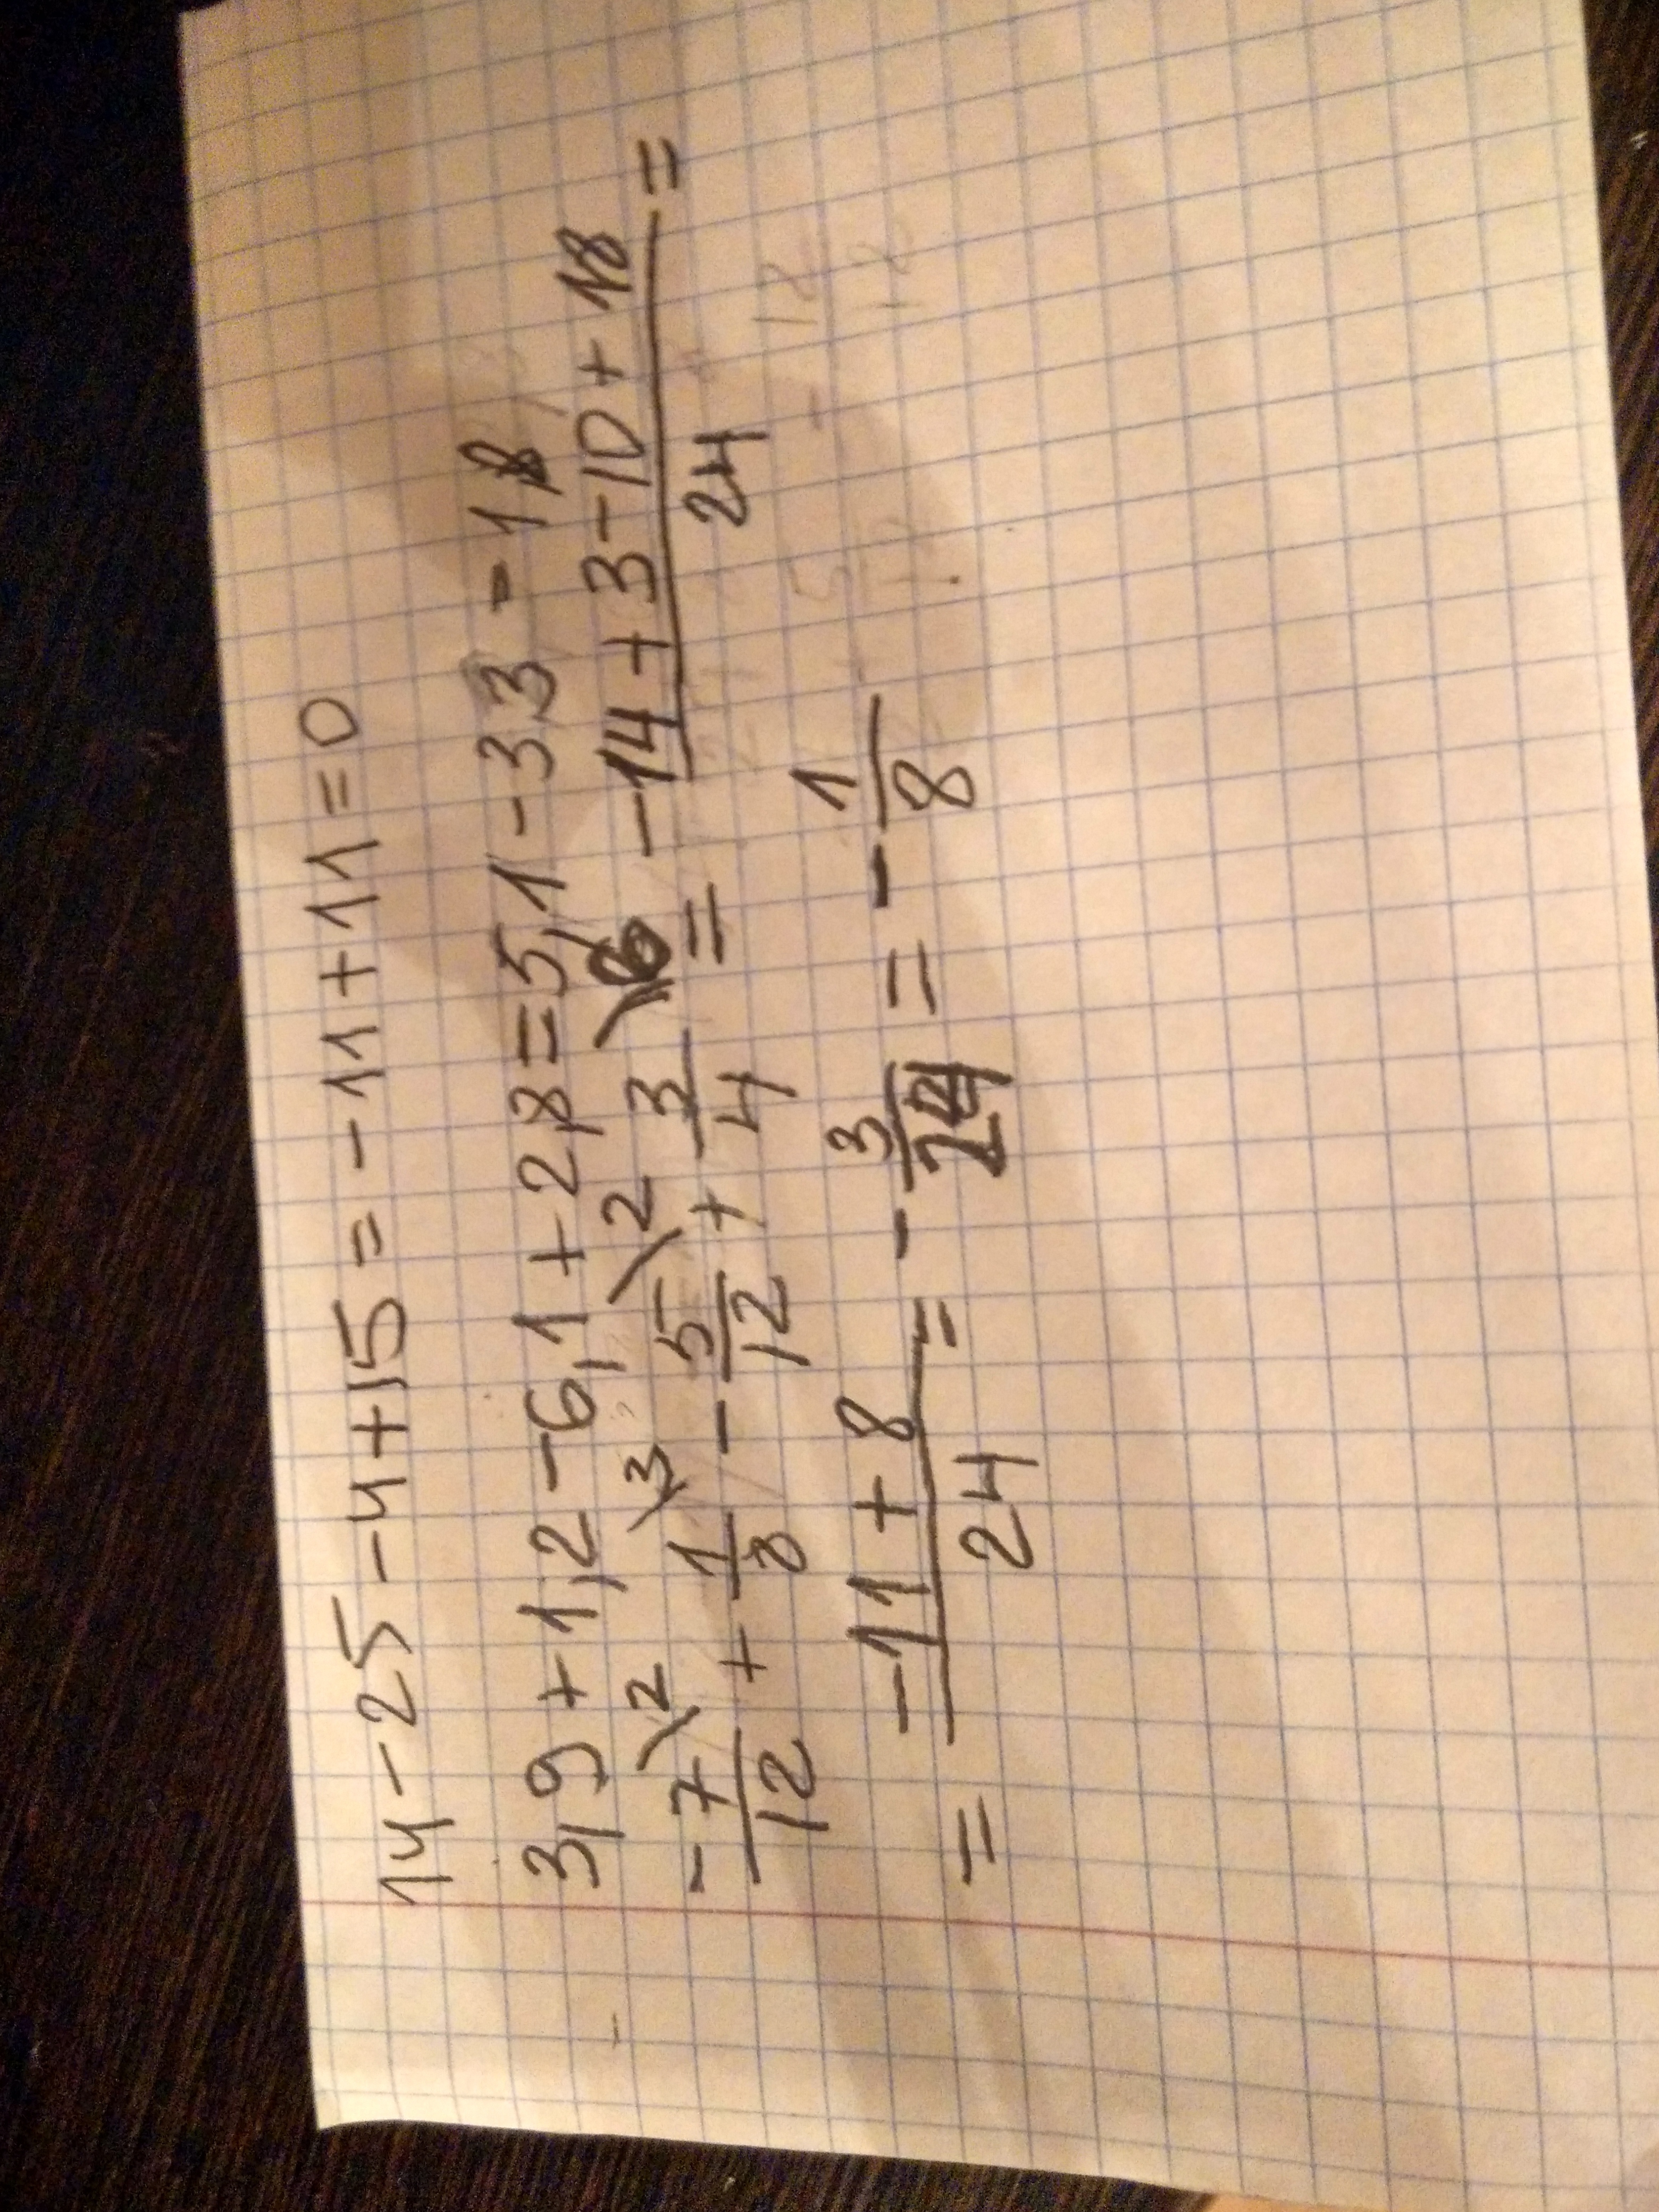 14 - 25 - 4 + 15 = - 11 + 11 = 0
3,9 + 1,2 - 6,1 + 2,8 = 5,1 - 3,3 = 1,8
- 7/12 \2 + 1/8 \3 - 5/12 \2 + 3/4 \6 = (-14 + 3 - 10 + 18)/24 =
= (-11 + 8)/24 = - 3/24 = - 1/8